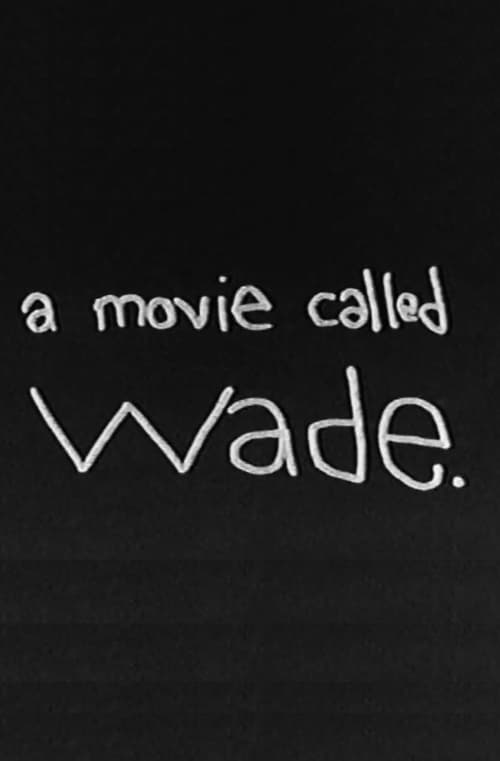 a movie called
Wade.